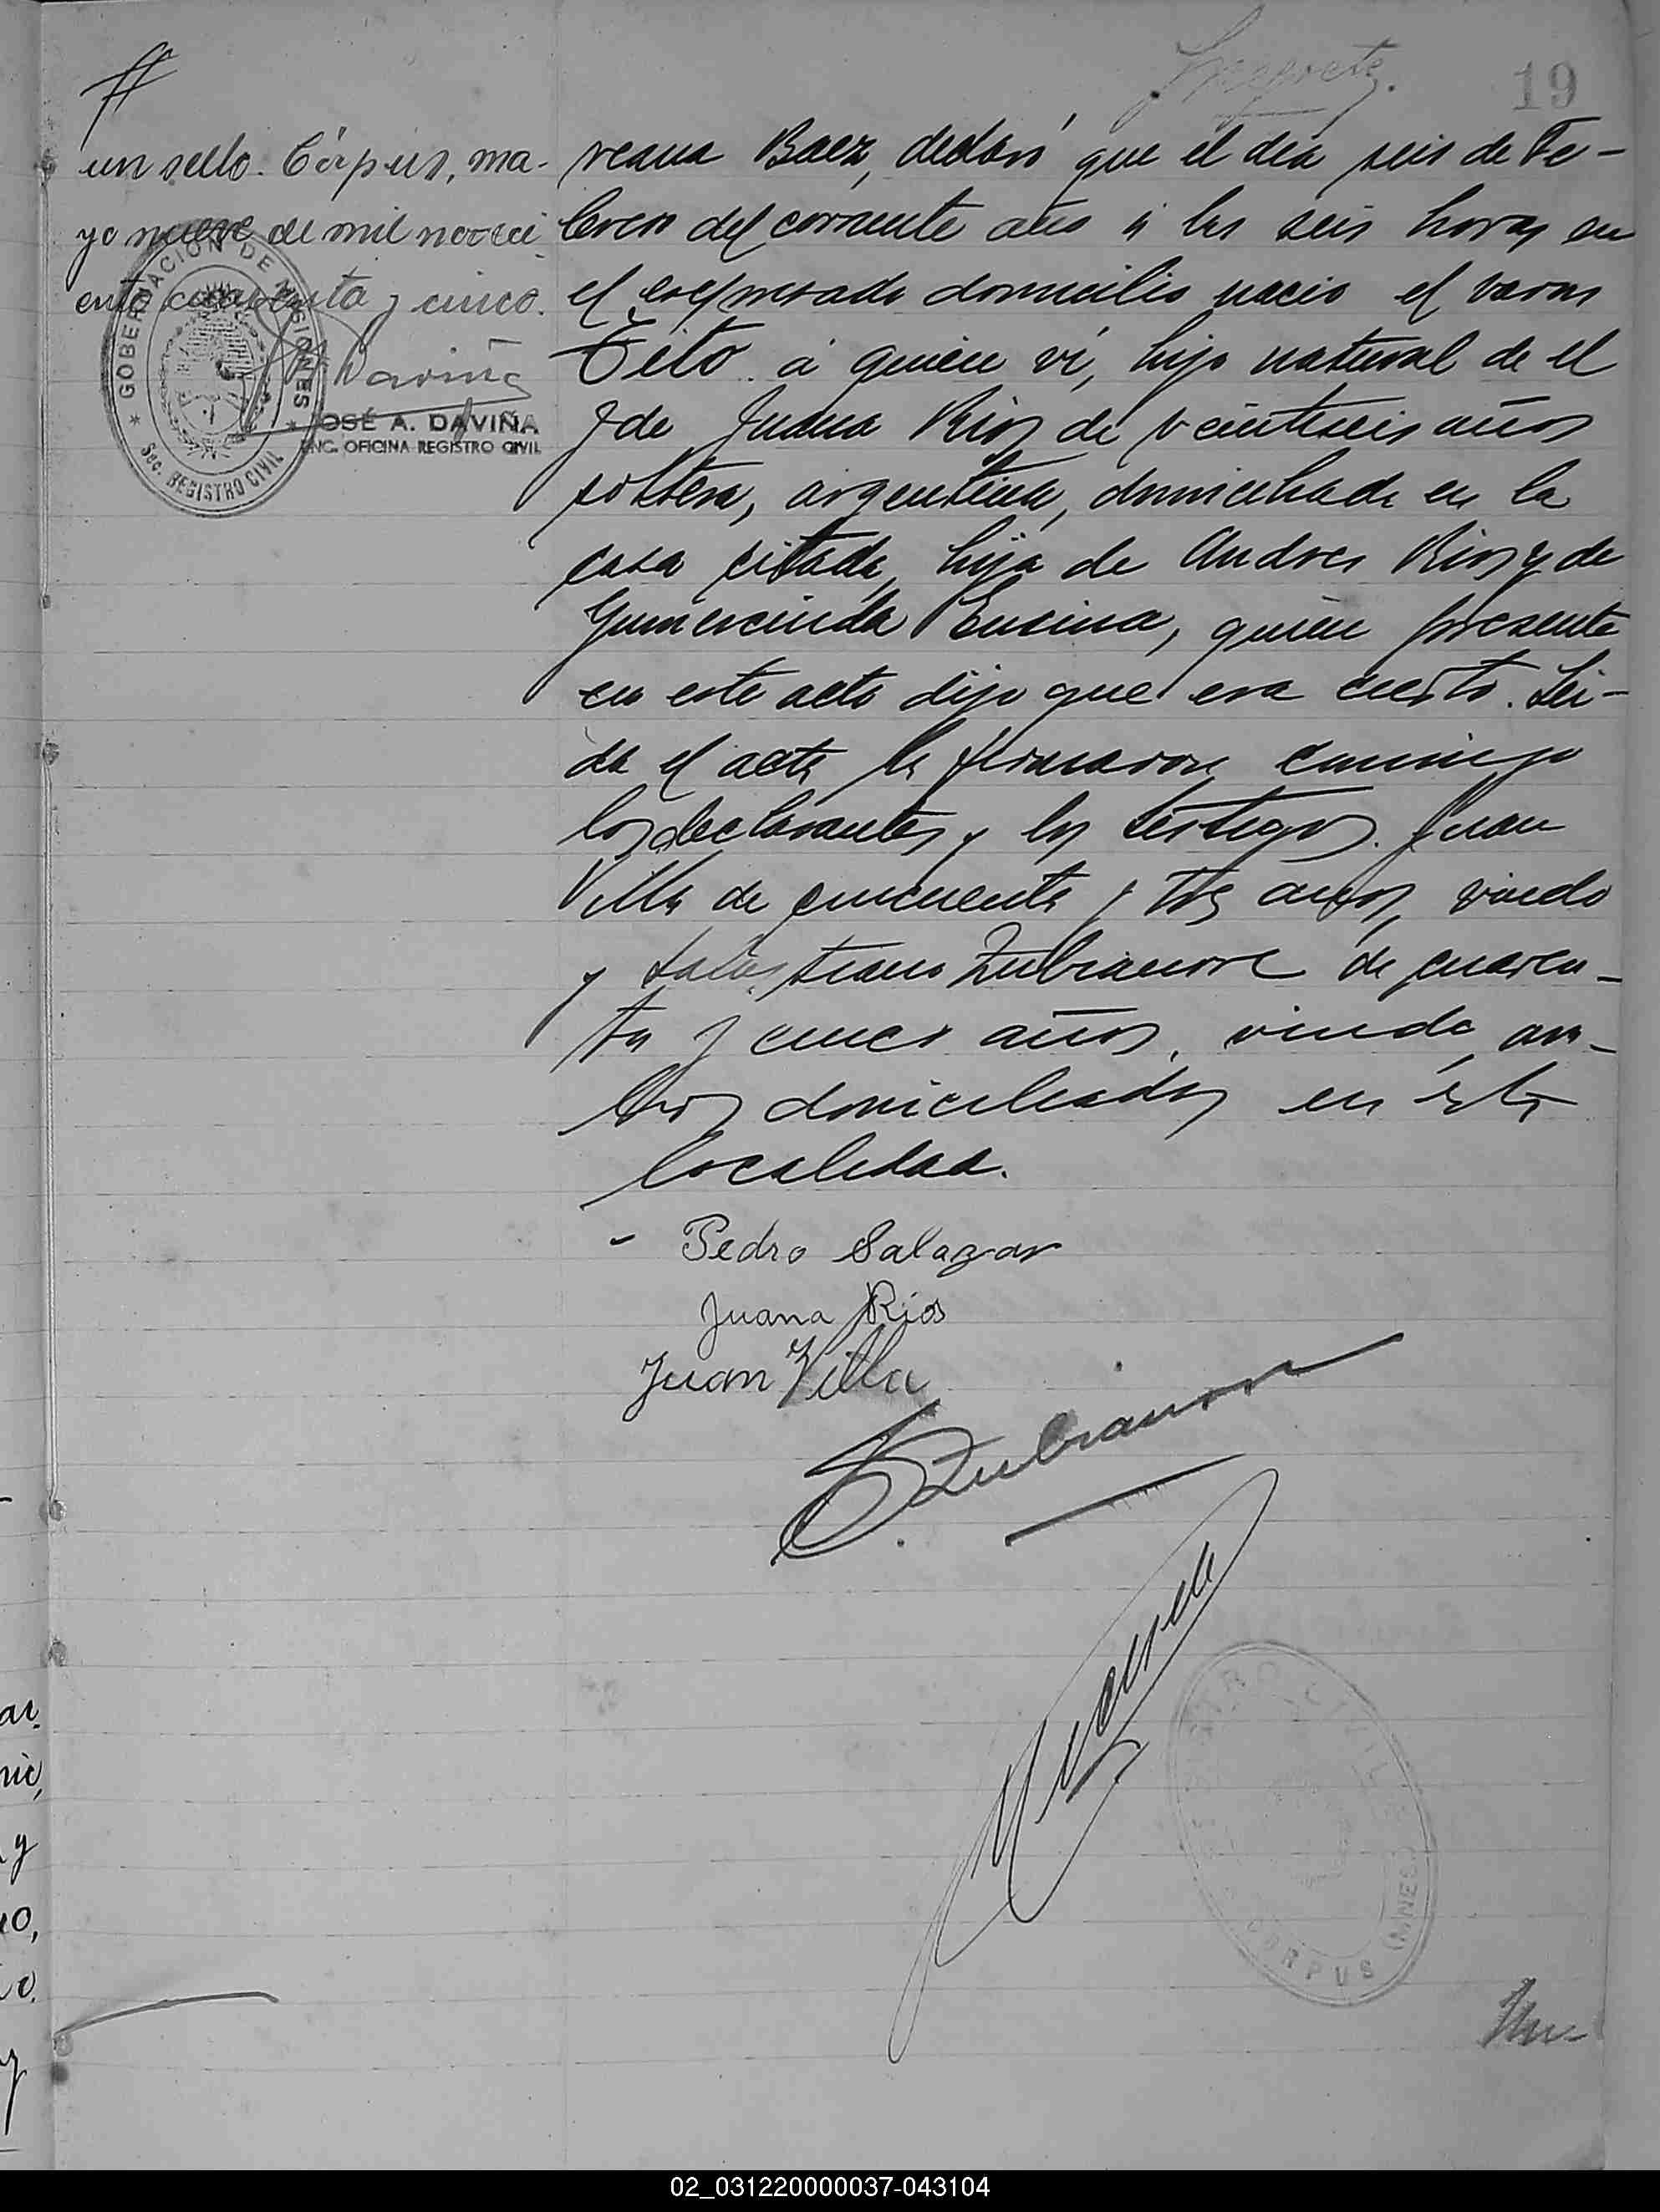 19
un sello. Córpus, ma-
yo nueve de mil noveci
ento cuarenta y cinco.
GOBERNACION DE MISIONES
Sec. REGISTRO CIVIL
JOSÉ A. DAVIÑA
ENC. OFICINA REGISTRO CIVIL
Baez, declaró que el dia seis de Fe-
brero del corriente año á las seis horas en
el expresado domicilio nació el varon
Tito á quien ví, hijo natural de el
y de Juana Rios de veintiseis años
soltera, argentina, domiciliada en la
casa citada, hija de Andres Rios y de
Gumercinda Encina, quien presente
en este acto dijo que era cierto. Lei-
da el acta la firmaron conmigo
los declarantes y los testigos. Juan
Villa de cincuenta y tres años, viudo
y Zubiaurre de cuaren-
ta y cinco años, viudo, am-
bos domiciliados en ésta
localidad.
Pedro Salazar
Juana Rios
Juan Villa
S. Zubiaurre
REGISTRO CIVIL
CORPUS (MNES)
02_031220000037-043104